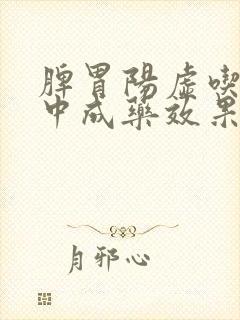 脾胃陽虛喫
中成藥效果
月邪心